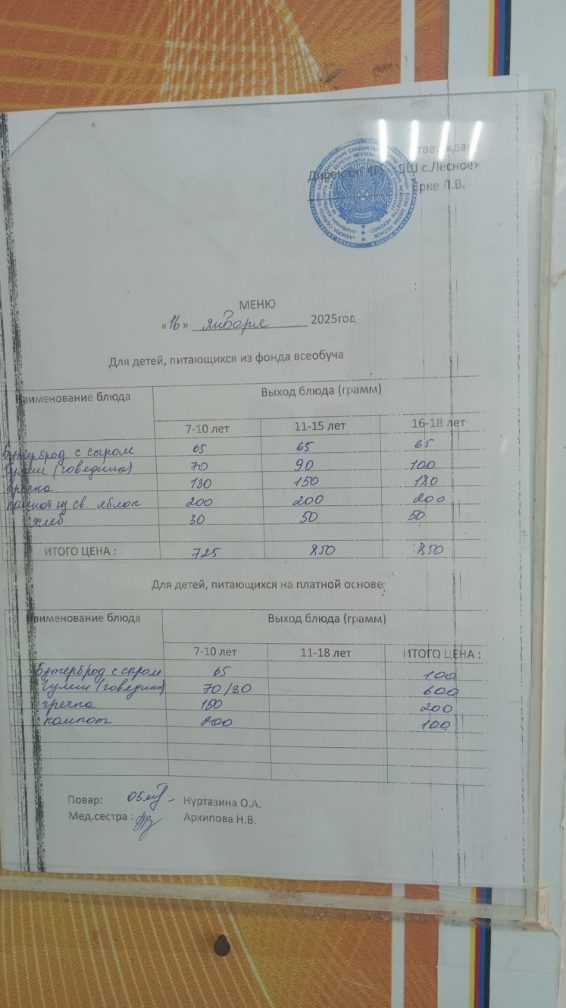 Утверждаю
Директор КГУ «ОШ с.Лесное»
Ерке Л.В.
МЕНЮ
«16» января 2025год
Для детей, питающихся из фонда всеобуча
Наименование блюда Выход блюда (грамм)
7-10 лет 11-15 лет 16-18 лет
Бутерброд с сыром 65 65 65
Гуляш (говядина) 70 90 100
гречка 130 150 180
компот из св. яблок 200 200 200
хлеб 30 50 50
ИТОГО ЦЕНА : 725 850 850
Для детей, питающихся на платной основе:
Наименование блюда Выход блюда (грамм)
7-10 лет 11-18 лет ИТОГО ЦЕНА :
Бутерброд с сыром 65 100
Гуляш (говядина) 70/30 600
гречка 150 200
компот 200 100
Повар: Нуртазина О.А.
Мед.сестра : Архипова Н.В.